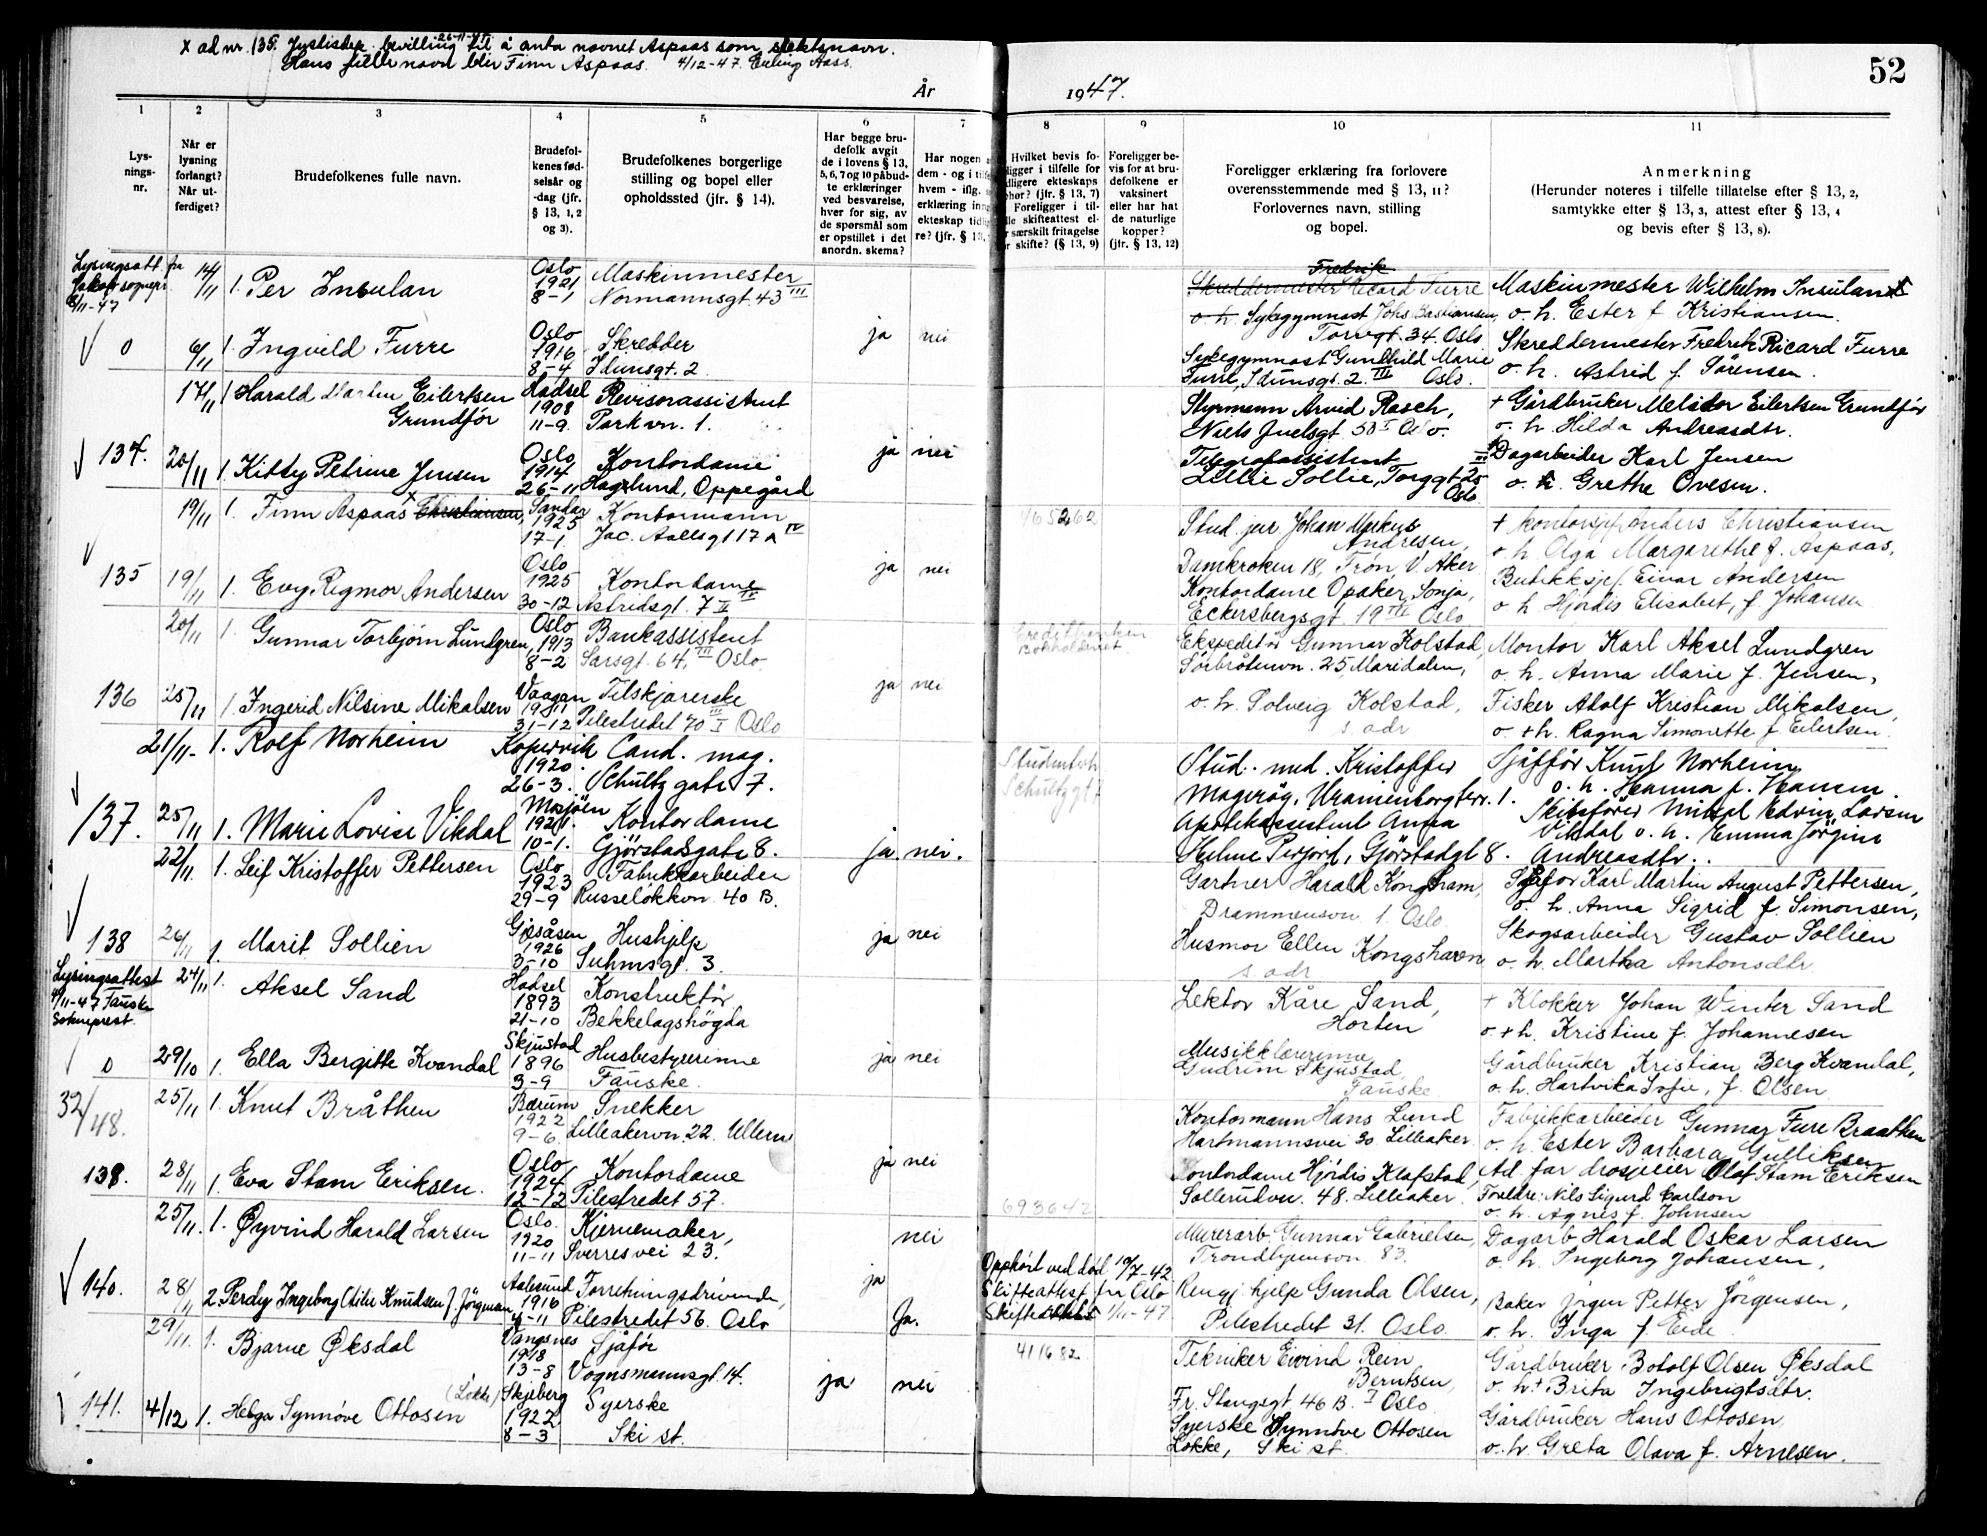 x ad nr. 135. Justisdep. bevilling 26-11-47 til å anta navnet Aspaas som slektsnavn.
Hans fulle navn blir Finn Aspaas. 4/12-47. Erling Aass.
52
År 1947.
1 2 3 4 5 6 7 8 9 10 11
Lys-
nings-
nr.
Når er
lysning
forlangt?
Når ut-
ferdiget?
Brudefolkenes fulle navn.
Brudefol-
kenes fød-
selsår og
-dag (jfr.
§ 13, 1, 2
og 3).
Brudefolkenes borgerlige
stilling og bopel eller
opholdssted (jfr. § 14).
Har begge bru-
defolk avgit
de i lovens § 13,
5, 6, 7 og 10 påbud-
te erklæringer
ved besvarelse,
hver for sig, av
de spørsmål som
er opstillet i det
anordn. skema?
Har nogen a
dem - og i tilfe
hvem - iflg.
erklæring inng
ekteskap tidlig
re? (jfr. § 13,
Hvilket bevis fo-
ligger i tilfelle for
dligere ekteskaps
phør? (jfr. § 13, 7)
Foreligger i til-
lle skifteattest el-
r særskilt fritagelse
r skifte? (§ 13, 9)
Foreligger be-
vis for at bru-
defolkene er
vaksinert
eller har hat
de naturlige
kopper?
(jfr. § 13, 12)
Foreligger erklæring fra forlovere
overensstemmende med § 13, 11?
Forlovernes navn, stilling
og bopel.
Anmerkning
(Herunder noteres i tilfelle tillatelse efter § 13, 2,
samtykke efter § 13, 3, attest efter § 13, 4
og bevis efter § 13, 8).
Lysingsatt. fra
Jakob sognepr.
8/11-47
14/11 1. Per Insulan
Oslo
1921
8-1
Maskinmester
Normannsgt. 43 III
Skreddermester Fredrik Ricard Furre
o. h. Sykegymnast Johs Bastiansen,
Torvgt. 34. Oslo
Maskinmester Wilhelm Insulan
o. h. Ester f. Kristiansen.
0 6/11 1. Ingvild Furre
Oslo
1916
8-4
Skredder
Idunsgt. 2
ja nei
Sykegymnast Gunhild Marie
Furre, Idunsgt. 2 III Oslo.
Skreddermester Fredrik Ricard Furre
o. h. Astrid f. Sørensen.
17/11 1 Harald Martin Eilertsen
Grundfór
Hadsel
1908
11-9
Revisorassistent
Parkvn. 1.
Styrmann Arvid Rasch,
Niels Juelsgt. 50 I Oslo.
+ Gårdbruker Melidor Eilertsen Grundfór
o. h. Hilda Andreasdtr.
134. 20/11 1 Kitty Petrine Jensen
Oslo
1914
26-11
Kontordame
Haglund, Oppegård
ja nei
Telegrafassistent
Lellie Sollie, Torggt 25 III
Oslo
Dagarbeider Karl Jensen
o. h. Grethe Ovesen.
19/11 1. Finn Aspaas x Christiansen,
Sandar
1925
17-1
Kontormann
Jac. Aallsgt 17 A IV
465262
Stud. jur Johan Markus
Andresen,
Damkroken 18, Frón V. Aker
+ kontorsjef Anders Christiansen
o. h Olga Margarethe f. Aspaas.
135 19/11 1. Evy Rigmor Andersen
Oslo
1925
30-12
Kontordame
Astridsgt. 7 II
ja nei
Kontordame Opaker, Sonja,
Eckersbergsgt. 19 III Oslo
Butikksjef Einar Andersen
o h Hjördis Elisabet, f. Johansen
20/11 1. Gunnar Torbjörn Lundgren,
Oslo
1913
8-2
Bankassistent
Sarsgt. 64, III Oslo
Creditbanken
Bokholderiet
Ekspeditör Gunnar Kolstad,
Sörbråtenvn. 25 Maridalen,
Montør Karl Aksel Lundgren
o. h. Anna Marie f. Jensen,
136 25/11 1. Ingerid Nilsine Mikalsen
Vaagan
1911
31-12
Tilskjærerske
Pilestredet 70 III I Oslo
ja nei
o. h. Solveig Kolstad,
s. adr
Fisker Adolf Kristian Mikalsen,
o. + h. Ragna Simonette f Eilertsen.
21/11- 1. Rolf Norheim
Kopervik
1920.
26-3.
Cand. mag.
Schultz gate 7.
Schultz gt 7
Stud. med. Kristoffer
Mageröy, Uranienborgterr. 1.
Sjåför Knut Norheim
o. h. Hanna f. Hansen.
137. 25/11 1. Marie Lovise Vikdal
Mosjöen
1921.
10-1.
Kontordame
Gjörstadsgate 8.
ja nei.
Apotekassistent Anna
Helene Persjord, Gjörstadgt 8.
Skibsfører Mikal Edvin Larsen
Vikdal o. h. Emma Jörgine
Andreasdtr.
22/11. 1. Leif Kristoffer Pettersen
Oslo
1923
29-9
Fabrikkarbeider
Russeløkkvn. 40 B.
Gartner Harald Kongsham,
Drammensvn 1. Oslo
Sjåfør Karl Martin August Pettersen,
o. h. Anna Sigrid f. Simonsen,
138 26/11 1. Marit Sollien
Gjesåsen
1926
3-10
Hushjelp
Suhmsgt. 3.
ja nei
Husmor Ellen Kongshavn
s. adr
Skogsarbeider Gustav Sollien
o. h. Martha Antonsdtr.
Lysingsattest
4/11-47 Fauske
Sokneprest.
24/11 1. Aksel Sand
Hadsel
1893
21-10
Konstruktör
Bekkelagshögda
Lektor Kåre Sand,
Horten
+ Klokker Johan Winter Sand
o. + h. Kristine f. Johannesen
0 29/10 1. Ella Bergitte Kvandal
Skjustad
1896
3-9
Husbestyrerinne
Fauske.
ja nei
Musikklærerinne
Gudrun Skjustad
Fauske
Gårdbruker Kristian Berg Kvandal,
o. h. Hartvika Sofie, f. Olsen
32/48. 25/11 1. Knut Bråthen
Bærum
1922
9-6
Snekker
Lilleakervn. 22. Ullern
Kontormann Hans Lund
Hartmannsvei 30. Lilleaker.
Fabrikkarbeider Gunnar Fure Braathen
o. h. Ester Barbara Gulliksen
139. 28/11 1. Eva Stam Eriksen.
Oslo
1924
12-12
Kontordame
Pilestredet 57.
ja nei
693642
Kontordame Hjördis Klafstad,
Sollerudvn. 48. Lilleaker.
Ad. far drosjeeier Olaf Stam Eriksen
Foreldre: Nils Sigurd Carlson
o. h. Agnes f. Johnsen
25/11. 1. Øyvind Harald Larsen
Oslo.
1920
11-11
Kjernemaker,
Sverresvei 23.
nei
Murerarb. Gunnar Gabrielsen,
Trondhjemsvn 83.
Dagarb Harald Oskar Larsen
o. h. Ingeborg Johansen,
140. 28/11 2. Perdy Ingeborg Otilie Knudsen f. Jörgensen,
Aalesund
1916
4-11
Forretningsdrivende,
Pilestredet 56. Oslo
ja Ja.
Opphört ved död 19/7-42
Skifteattest fra Oslo
Skifterett 1/11-47
Rengj. hjelp Gunda Olsen,
Pilestredet 31. Oslo.
Baker Jörgen Petter Jörgensen,
o. h. Inga f. Eide.
29/11. 1. Bjarne Øksdal
Vangsnes
1918
13-8
Sjåför
Vognmannsgt. 14.
411682
Tekniker Eivind Rein
Berntsen,
Fr. Stangsgt 46 B. I Oslo
Gårdbruker Botolf Olsen Øksdal
o. h. + Brita Ingebrigtsdtr.
141. 4/12 1. Helga Synnøve Ottosen (Løkke)
Skjeberg
1922
8-3
Syerske
Ski st.
ja nei
Syerske Synnöve Ottosen
Løkke, Ski st.
Gårdbruker Hans Ottosen
o. h. Greta Olava f. Arnesen.